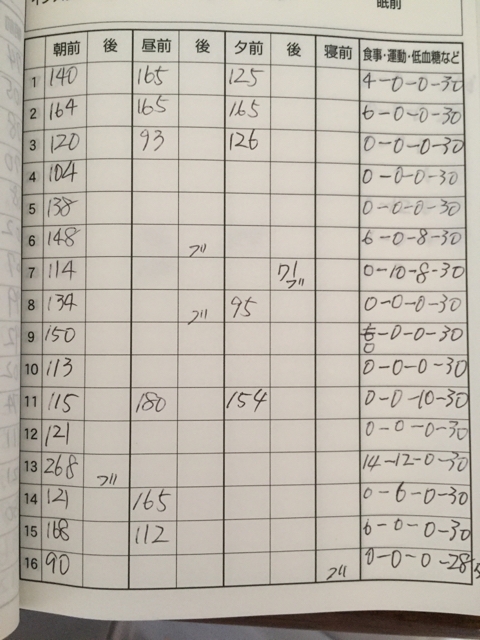 眠前
朝前 後 昼前 後 夕前 後 寝前 食事・運動・低血糖など
1 140 165 125 4-0-0-30
2 164 165 165 6-0-0-30
3 120 93 126 0-0-0-30
4 104 0-0-0-30
5 138 0-0-0-30
6 148 ブリ 6-0-8-30
7 114 71 ブリ 0-10-8-30
8 134 ブリ 95 0-0-0-30
9 150 0-0-0-30
10 113 0-0-0-30
11 115 180 154 0-0-10-30
12 121 0-0-0-30
13 268 ブリ 14-12-0-30
14 121 165 0-6-0-30
15 168 112 6-0-0-30
16 90 ブリ 0-0-0-28